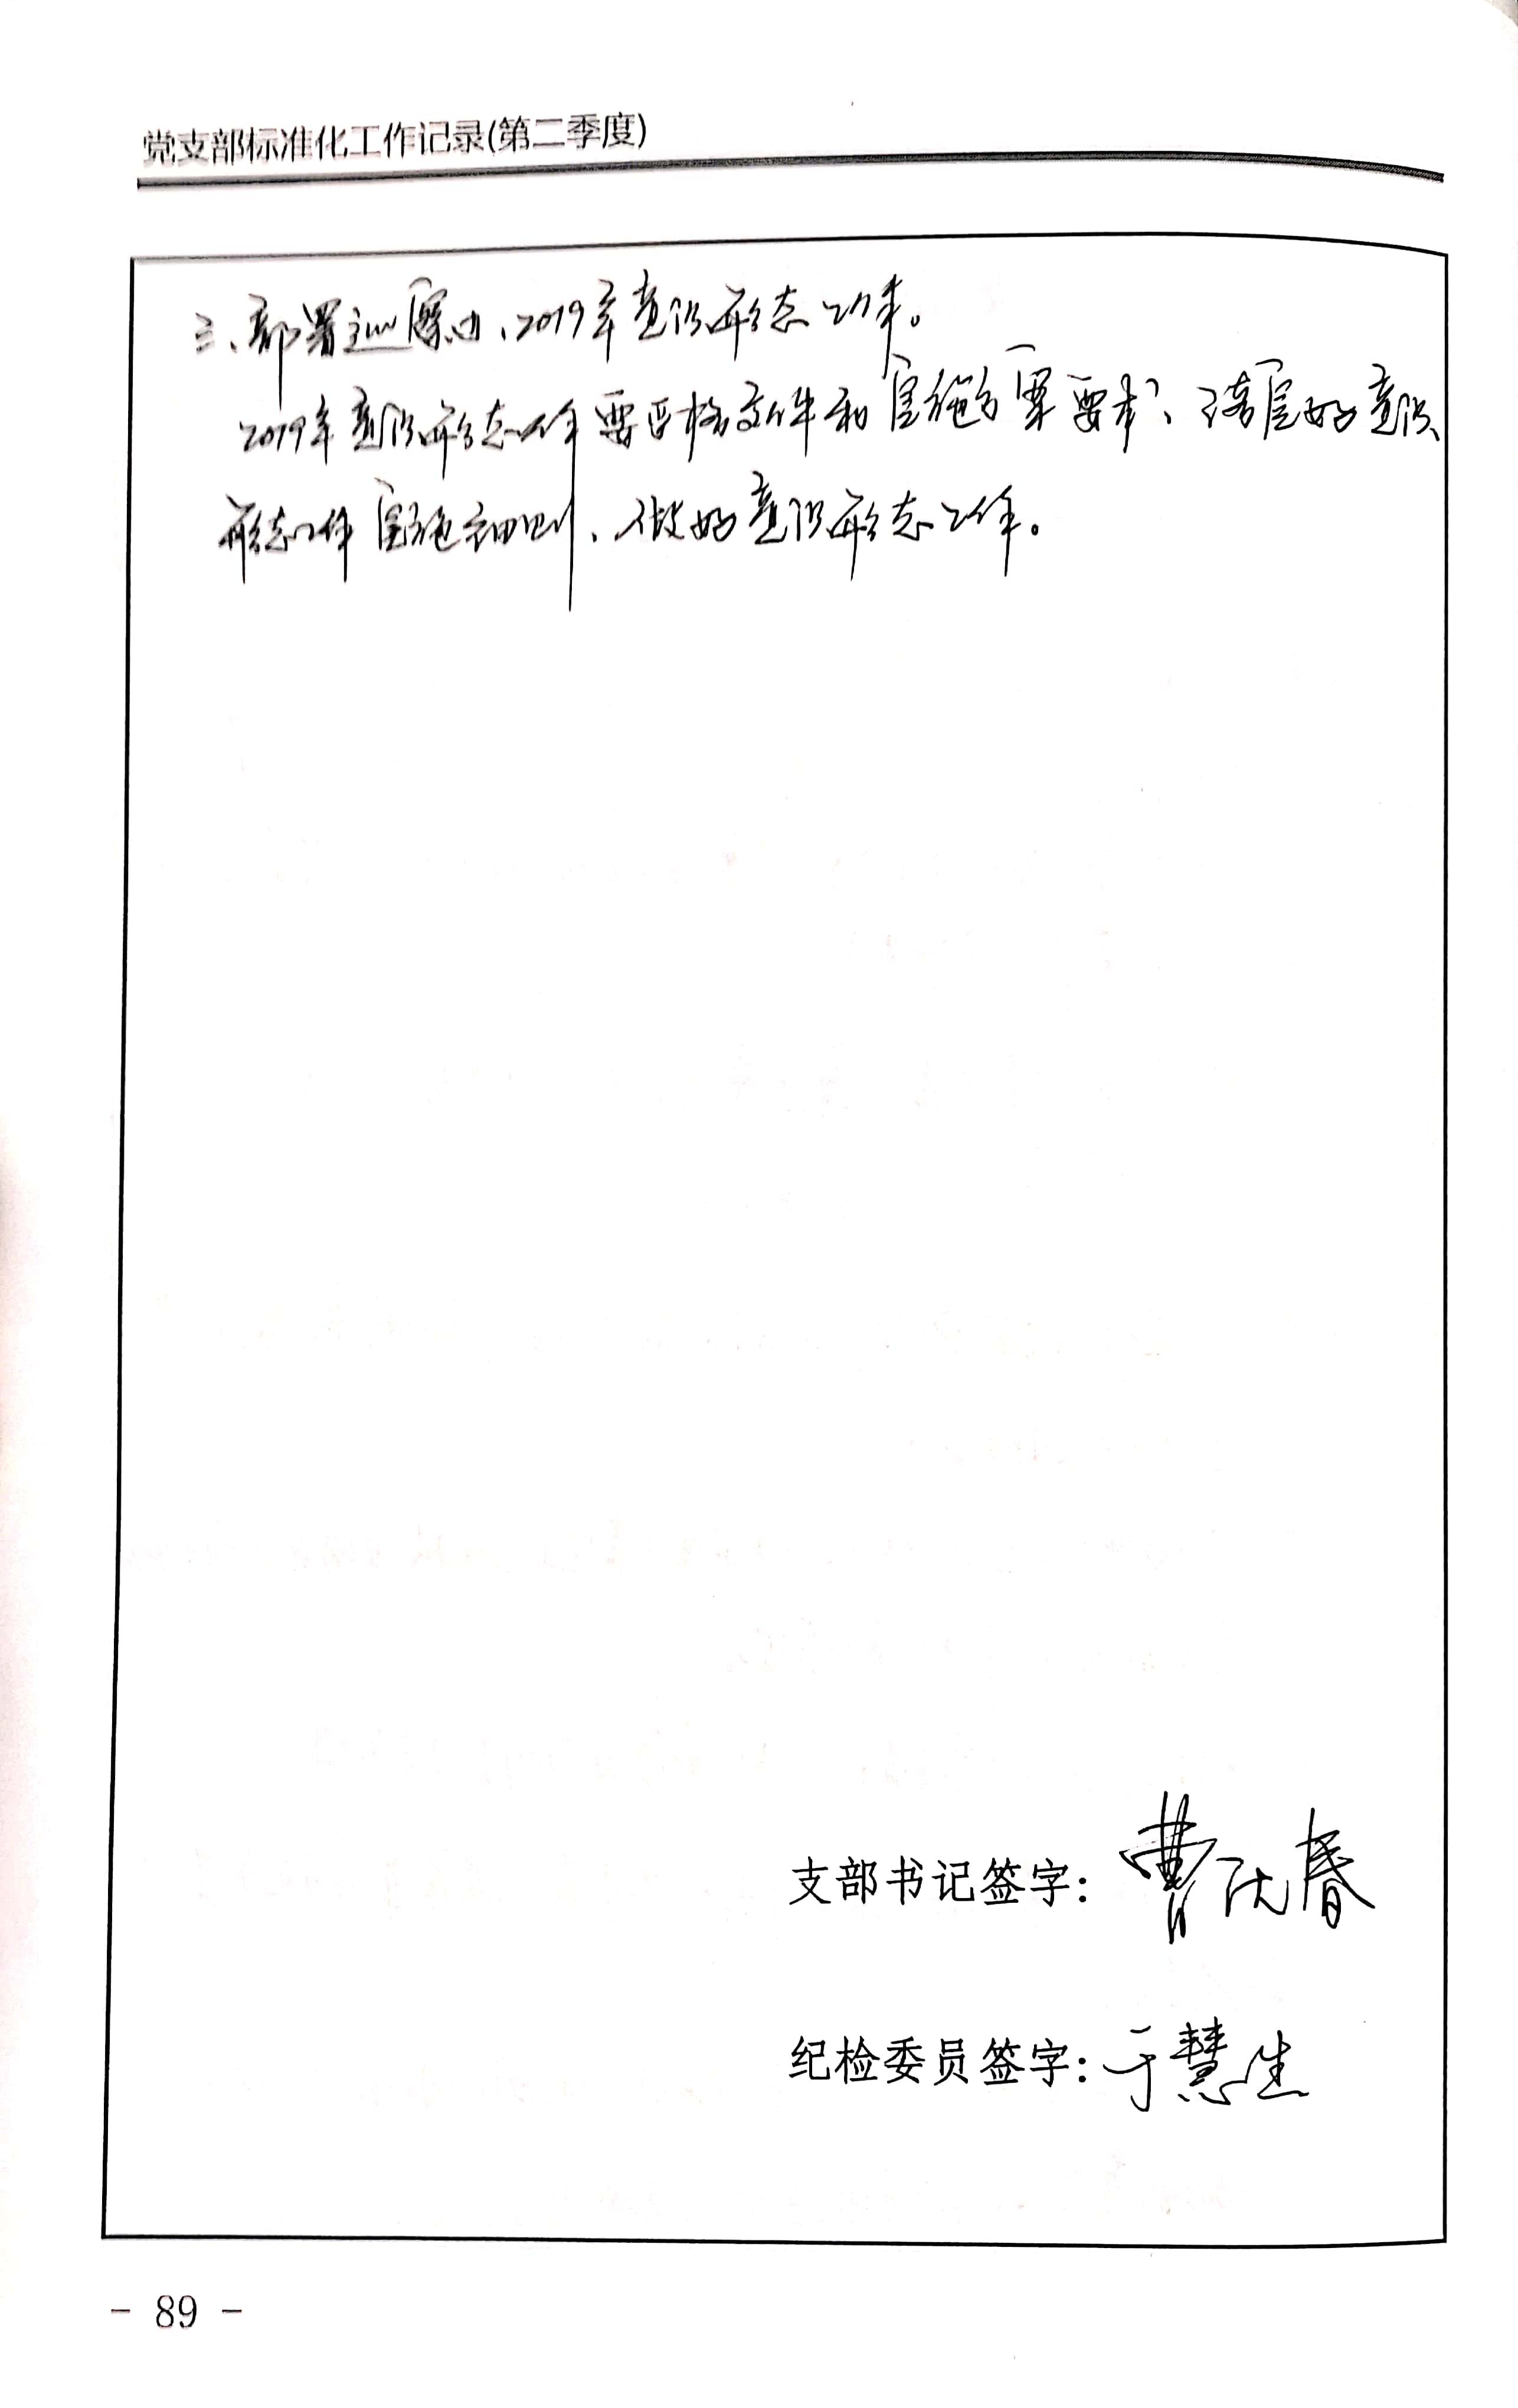 党支部标准化工作记录(第二季度)
三、部署巡察办、2019年意识形态工作。
2019年意识形态工作要严格文件和实施方案要求、落实好意识
形态工作实施细则、做好意识形态工作。
支部书记签字：曹春
纪检委员签字：于慧生
- 89 -